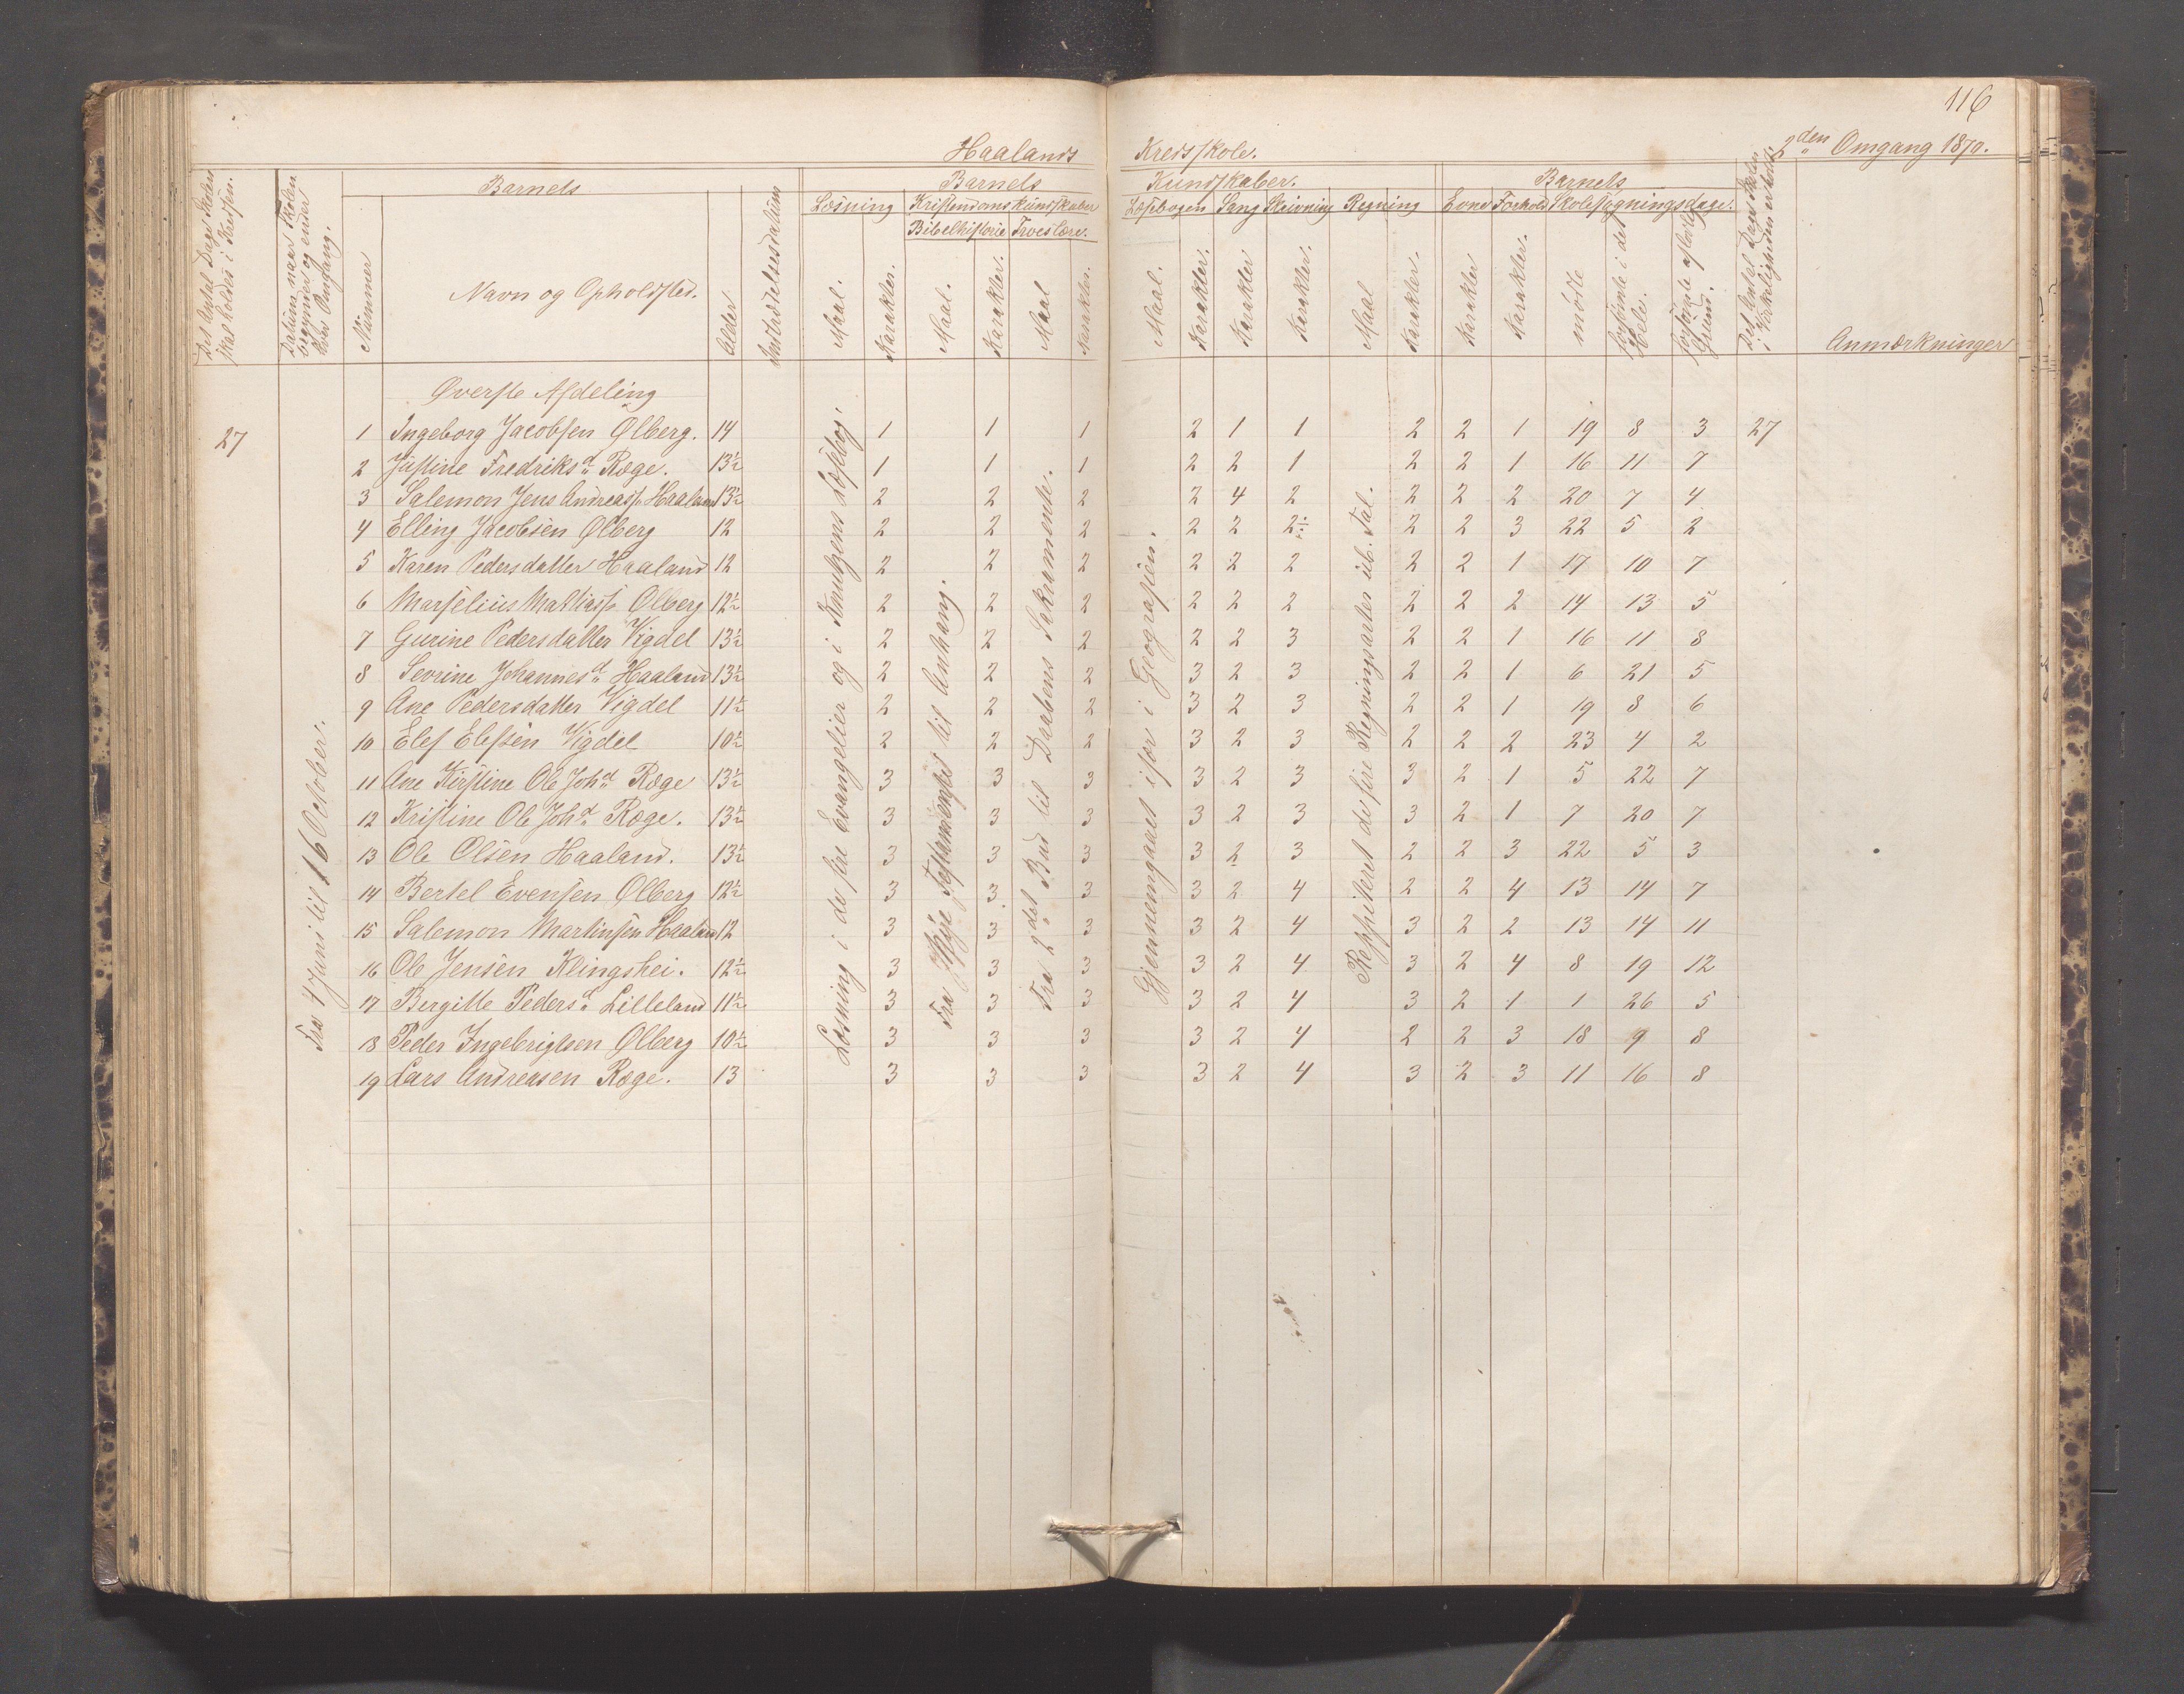 116
Haalands Kredsskole.
2den Omgang 1870.
Det Antal Dage Skolen skal holdes i Kredsen.
Datum naar Skolen begynder og ender hver Omgang.
Barnets
Nummer
Navn og Opholdssted.
Alder
Indtædelsesdatum
Barnets Kundskaber.
Læsning
Maal.
Karakter.
Kristendomskundskaber
Bibelhistorie
Maal.
Karakter.
Troeslære.
Maal
Karakter.
Læsebogen
Maal.
Karakter.
Sang
Karakter
Skrivning
Karakter.
Regning
Maal
Karakter.
Barnets
Evne
Karakter
Forhold
Karakter.
Skolesøgningsdage.
mødte
forsømte i det Hele.
forsømte af lovlig Grund.
Det Antal Dage Skolen i Virkeligheden er holdt.
Anmærkninger
Øverste Afdeling
27
Fra 4 Juni til 16 October.
Læsning i de fire Evangelier og i Knudsens Læsebog.
Fra Nÿe Testamentes til Anhang.
Fra 2det Bud til Daabens Sakramente.
Gjennemgaaet især i Geografien.
Reppiteret de fire Regningsarter ub. Tal.
1 Ingeborg Jacobsen Ølberg. 14 1 1 1 2 1 1 2 2 1 19 8 3 27
2 Justine Fredriksd. Ræge. 13½ 1 1 1 2 2 1 2 2 1 16 11 7
3 Salemon Jens Andreass. Haaland 13½ 2 2 2 2 4 2 2 2 2 20 7 4
4 Elling Jacobsen Ølberg 12 2 2 2 2 2 2÷ 2 2 3 22 5 2
5 Karen Pedersdatter Haaland 12 2 2 2 2 2 2 2 2 1 17 10 7
6 Marselius Mathiass. Ølberg 12½ 2 2 2 2 2 2 2 2 2 14 13 5
7 Gurine Pedersdatter Vigdel 13½ 2 2 2 2 2 3 2 2 1 16 11 8
8 Sevrine Johannesd. Haaland 13½ 2 2 2 3 2 3 2 2 1 6 21 5
9 Ane Pedersdatter Vigdel 11½ 2 2 2 3 2 3 2 2 1 19 8 6
10 Elef Elefsen Vigdel 10½ 2 2 2 3 2 3 2 2 2 23 4 2
11 Ane Kirstine Ole Johd. Ræge 13½ 3 3 3 3 2 3 3 2 1 5 22 7
12 Kristine Ole Johd. Ræge. 13½ 3 3 3 3 2 3 3 2 1 7 20 7
13 Ole Olsen Haaland. 13½ 3 3 3 3 2 3 2 2 3 22 5 3
14 Bertel Evensen Ølberg 12½ 3 3 3 3 2 4 2 2 4 13 14 7
15 Salemon Martinsen Haaland 12 3 3 3 3 2 4 3 2 2 13 14 11
16 Ole Jensen Klingshei. 12½ 3 3 3 3 2 4 3 2 4 8 19 12
17 Bergitte Pedersd. Lilleland 11½ 3 3 3 3 2 4 3 2 1 1 26 5
18 Peder Ingebrigtsen Ølberg 10½ 3 3 3 3 2 4 2 2 3 18 9 8
19 Lars Andreasen Ræge. 13 3 3 3 3 2 4 3 2 3 11 16 8